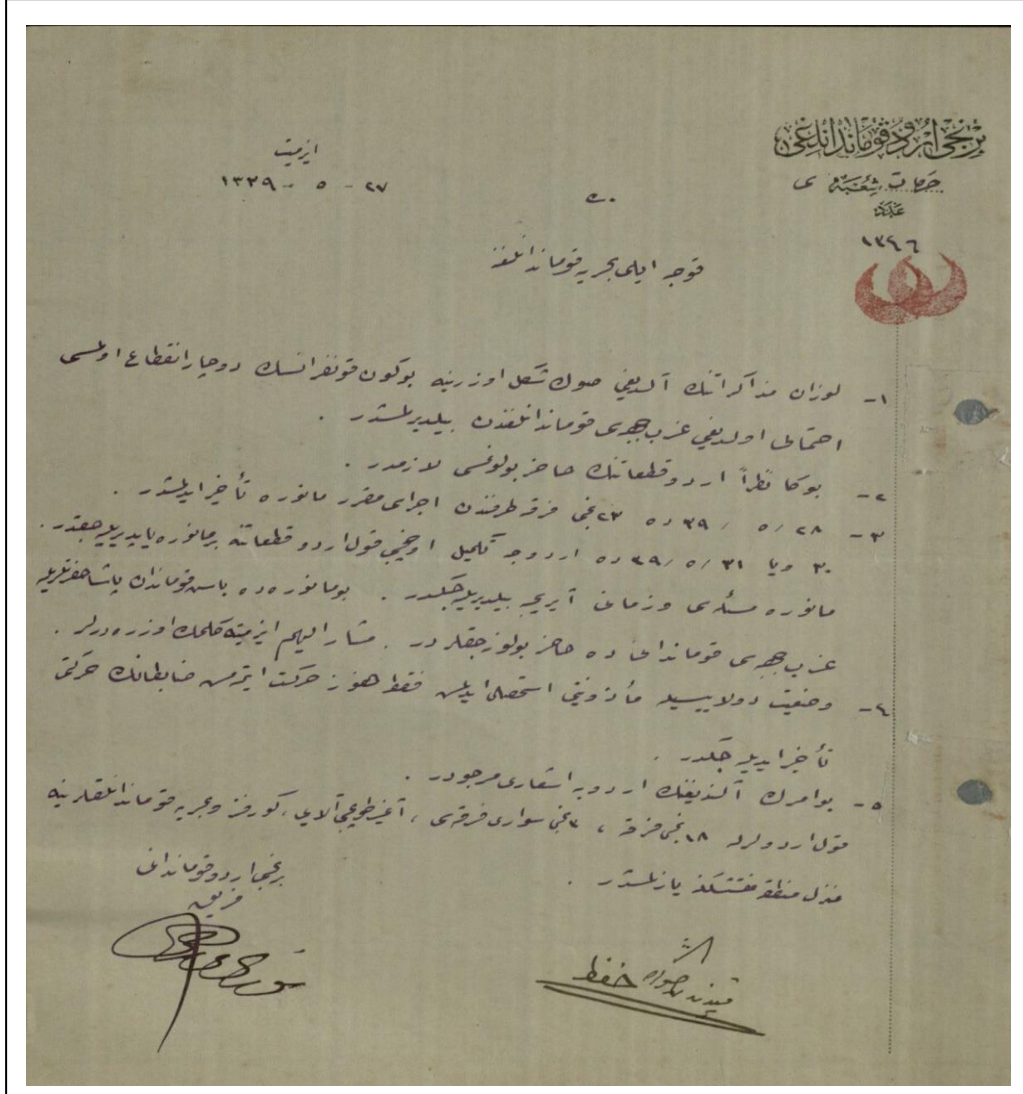 برنجی اردو قوماندانلغی
حركات شعبه سی
عدد
١٣٩٦
ازمیت
٢٧ - ٥ - ١٣٣٩
قوجه ایلی بحریه قوماندانلغنه
١- لوزان مذاكراتنك آلدیغی صوك شكل اوزرینه بوكون قونفرانسك دوچار انقطاع اولمسی
احتمالی اولدیغی غرب جبهه سی قوماندانلغندن بیلدیرلمشدر .
٢- بوكا نظراً اردو قطعاتنك حاضر بولونمسی لازمدر .
٣- ٢٨ / ٥ / ٣٩ ده ٢٣ نجی فرقه طرفندن اجراسی مقرر مانوره تأخیر ایدلمشدر .
٣٠ ویا ٣١ / ٥ / ٣٩ ده اردوجه قول اردو قطعاتنه بر مانوره یاپدیریله جقدر .
مانوره مسئله سی و زمانی آیریجه بیلدیریله جكدر . بو مانوره ده باش قوماندان پاشا حضرتلریله
غرب جبهه سی قوماندانی ده حاضر بولونه جقلردر . مشار الیهم ازمیته كلمك اوزره درلر .
٤- وضعیت دولاییسیله مأذونیتی استحصال ایدیلن فقط هنوز حركت ایتمه مش ضابطانك حركتی
تأخیر ایدیله جكدر .
٥- بو امرك آلندیغنك اردویه اشعاری مرجودر .
قول اردولره ١٨ نجی فرقه ، نجی سواری فرقه سی ، آغیر طوپجی آلایی ، كورفز و بحریه قوماندانلقلرینه
منزل منطقه مفتشلكنه یازلمشدر .
برنجی اردو قوماندانی
فریق
حفظ